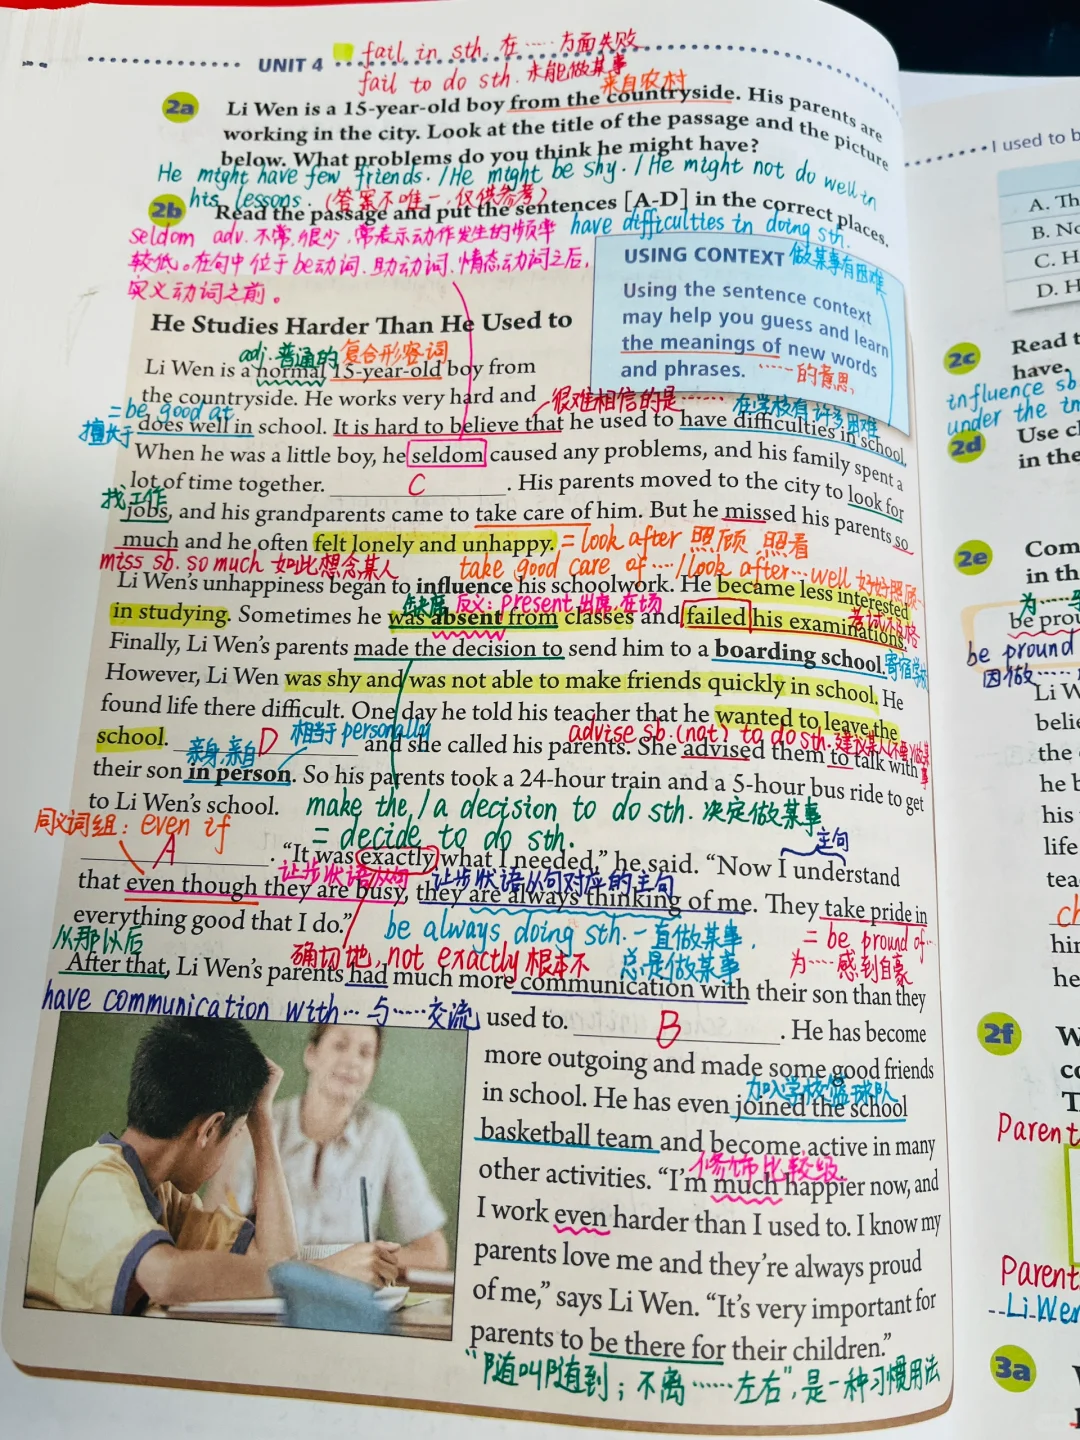 UNIT 4
fail in sth. 在……方面失败
fail to do sth. 未能做某事
来自农村
2a Li Wen is a 15-year-old boy from the countryside. His parents are
working in the city. Look at the title of the passage and the picture
below. What problems do you think he might have?
He might have few friends. /He might be shy. /He might not do well in
his lessons. (答案不唯一,仅供参考)
2b Read the passage and put the sentences [A-D] in the correct places.
have difficulties in doing sth.
做某事有困难
seldom adv. 不常,很少,常表示动作发生的频率
较低。在句中位于be动词、助动词、情态动词之后,
实义动词之前。
USING CONTEXT
Using the sentence context
may help you guess and learn
the meanings of new words
and phrases.
……的意思
He Studies Harder Than He Used to
adj. 普通的 复合形容词
Li Wen is a normal 15-year-old boy from
the countryside. He works very hard and
很难相信的是…… 在学校有许多困难
=be good at
擅长于
does well in school. It is hard to believe that he used to have difficulties in school.
When he was a little boy, he seldom caused any problems, and his family spent a
lot of time together. C . His parents moved to the city to look for
找工作
jobs, and his grandparents came to take care of him. But he missed his parents so
much and he often felt lonely and unhappy. =look after 照顾,照看
miss sb. so much 如此想念某人
take good care of …/look after…well 好好照顾…
Li Wen's unhappiness began to influence his schoolwork. He became less interested
缺席 反义: present 出席,在场
考试不及格
in studying. Sometimes he was absent from classes and failed his examinations.
Finally, Li Wen's parents made the decision to send him to a boarding school.
寄宿学校
However, Li Wen was shy and was not able to make friends quickly in school. He
found life there difficult. One day he told his teacher that he wanted to leave the
相当于 personally
advise sb. (not) to do sth. 建议某人(不要)做某事
school. D and she called his parents. She advised them to talk with
亲身,亲自
their son in person. So his parents took a 24-hour train and a 5-hour bus ride to get
to Li Wen's school.
make the/a decision to do sth. 决定做某事
= decide to do sth.
同义词组: even if
主句
A . "It was exactly what I needed," he said. "Now I understand
让步状语从句 让步状语从句对应的主句
that even though they are busy, they are always thinking of me. They take pride in
everything good that I do."
be always doing sth. 一直做某事,
总是做某事
= be pround of…
为……感到自豪
从那以后
确切地, not exactly 根本不
After that, Li Wen's parents had much more communication with their son than they
have communication with… 与……交流
used to. B . He has become
more outgoing and made some good friends
加入学校篮球队
in school. He has even joined the school
basketball team and become active in many
修饰比较级
other activities. "I'm much happier now, and
I work even harder than I used to. I know my
parents love me and they're always proud
of me," says Li Wen. "It's very important for
parents to be there for their children."
"随叫随到;不离……左右",是一种习惯用法
I used to b
A. Th
B. No
C. H
D. H
2c Read t
have,
influence sb
under the in
2d Use cl
in the
2e Com
in th
为……
be prou
be pround
因做……
Li W
belie
the
he b
his
life
tea
ch
hin
he
2f W
co
T
Parent
Parent
Li Wen
3a